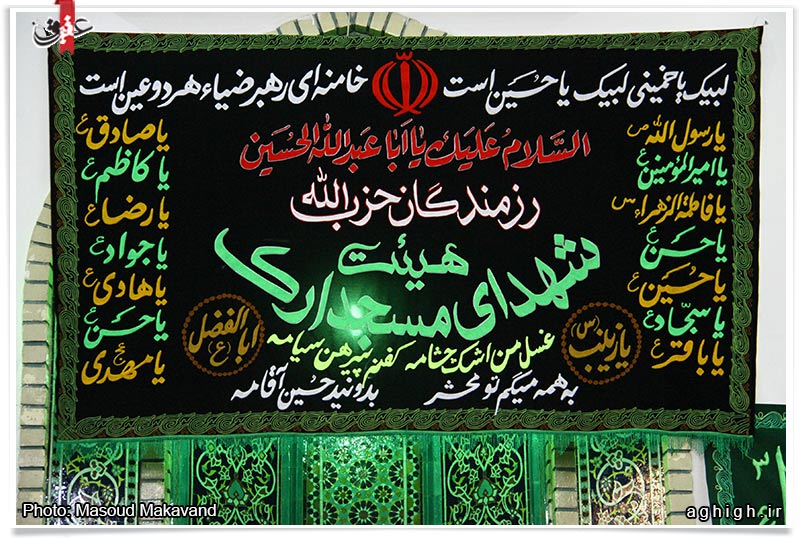 لبیک یا خمینی لبیک یا حسین است خامنه ای رهبر ضیاء هر دو عین است
السلام علیک یا ابا عبدالله الحسین
رزمندگان حزب الله
هیئت
شهدای مسجد ارک
غسل من اشک چشامه کفنم پیرهن سیامه
به همه میگم تو محشر بدونید حسین آقامه
یا رسول الله ص
یا امیرالمؤمنین ع
یا فاطمة الزهراء س
یا حسن ع
یا حسین ع
یا سجاد ع
یا باقر ع
یا زینب (س)
یا صادق ع
یا کاظم ع
یا رضا ع
یا جواد ع
یا هادی ع
یا حسن ع
یا مهدی عج
ابالفضل (ع)
عقیق
Photo: Masoud Makavand
aghigh.ir